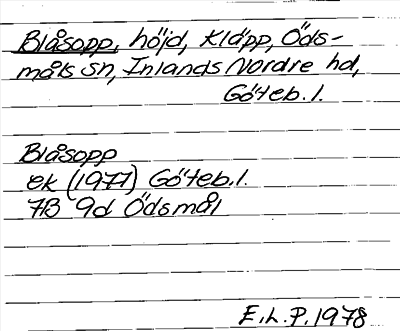 Blåsopp, höjd, Kläpp, Öds-
måls sn, Inlands Nordre hd,
Göteb. l.
Blåsopp
ek (1977) Göteb. l.
7B 9d Ödsmål
E.L.P. 1978